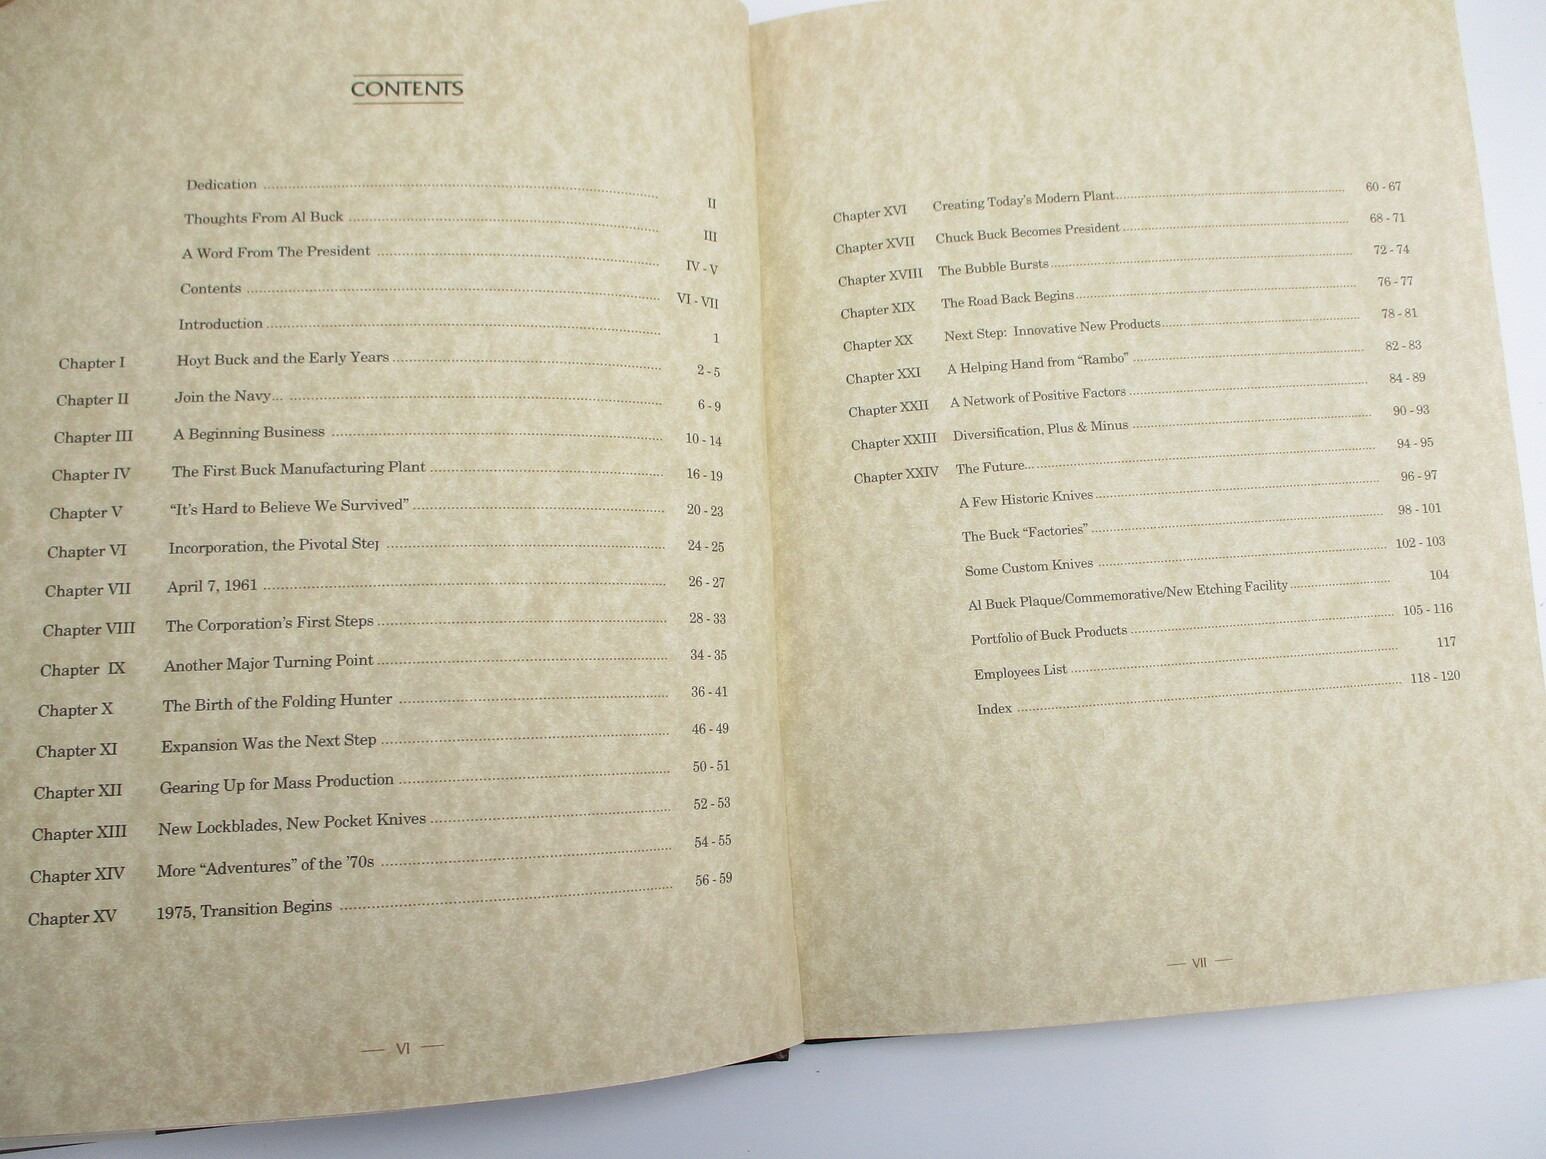 CONTENTS
Dedication ........ II
Thoughts From Al Buck ........ III
A Word From The President ........ IV - V
Contents ........ VI - VII
Introduction ........ 1
Chapter I Hoyt Buck and the Early Years ........ 2 - 5
Chapter II Join the Navy... ........ 6 - 9
Chapter III A Beginning Business ........ 10 - 14
Chapter IV The First Buck Manufacturing Plant ........ 16 - 19
Chapter V “It’s Hard to Believe We Survived” ........ 20 - 23
Chapter VI Incorporation, the Pivotal Step ........ 24 - 25
Chapter VII April 7, 1961 ........ 26 - 27
Chapter VIII The Corporation’s First Steps ........ 28 - 33
Chapter IX Another Major Turning Point ........ 34 - 35
Chapter X The Birth of the Folding Hunter ........ 36 - 41
Chapter XI Expansion Was the Next Step ........ 46 - 49
Chapter XII Gearing Up for Mass Production ........ 50 - 51
Chapter XIII New Lockblades, New Pocket Knives ........ 52 - 53
Chapter XIV More “Adventures” of the ’70s ........ 54 - 55
Chapter XV 1975, Transition Begins ........ 56 - 59
VI
Chapter XVI Creating Today’s Modern Plant ........ 60 - 67
Chapter XVII Chuck Buck Becomes President ........ 68 - 71
Chapter XVIII The Bubble Bursts ........ 72 - 74
Chapter XIX The Road Back Begins ........ 76 - 77
Chapter XX Next Step: Innovative New Products ........ 78 - 81
Chapter XXI A Helping Hand from “Rambo” ........ 82 - 83
Chapter XXII A Network of Positive Factors ........ 84 - 89
Chapter XXIII Diversification, Plus & Minus ........ 90 - 93
Chapter XXIV The Future... ........ 94 - 95
A Few Historic Knives ........ 96 - 97
The Buck “Factories” ........ 98 - 101
Some Custom Knives ........ 102 - 103
Al Buck Plaque/Commemorative/New Etching Facility ........ 104
Portfolio of Buck Products ........ 105 - 116
Employees List ........ 117
Index ........ 118 - 120
VII